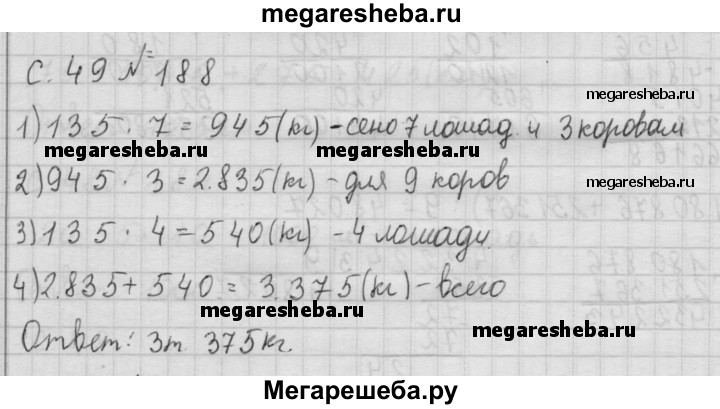 megaresheba.ru
С. 49 № 188
megaresheba.ru
1) 135 · 7 = 945 (кг) - сено 7 лошад. и 3 коровам
megaresheba.ru
2) 945 · 3 = 2.835 (кг) - для 9 коров
megaresheba.ru
3) 135 · 4 = 540 (кг) - 4 лошади.
4) 2.835 + 540 = 3.375 (кг) - всего
megaresheba.ru
Ответ: 3т 375кг.
megaresheba.ru
Мегарешеба.ру